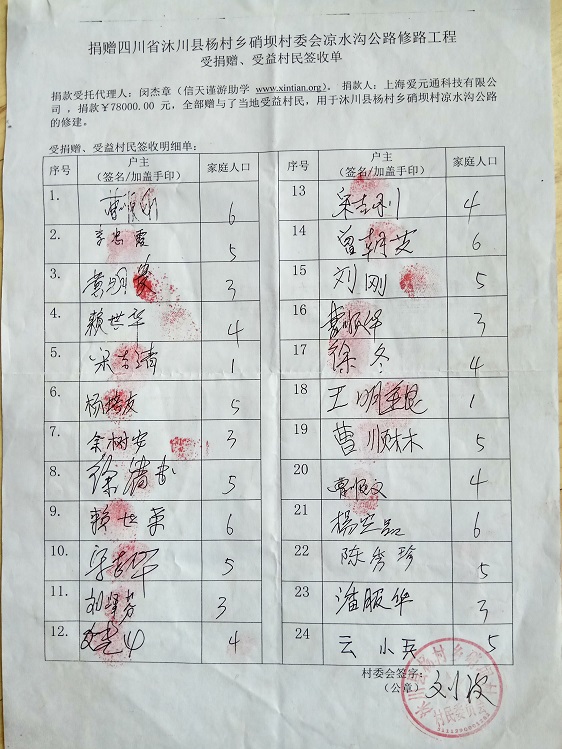 捐赠四川省沐川县杨村乡硝坝村委会凉水沟公路修路工程
受捐赠、受益村民签收单
捐款受托代理人：闵杰章（信天谨游助学 www.xintian.org）。 捐款人：上海爱元通科技有限公
司，捐款￥78000.00 元，全部赠与了当地受益村民，用于沐川县杨村乡硝坝村凉水沟公路
的修建。
受捐赠、受益村民签收明细单：
序号 户主（签名/加盖手印） 家庭人口
1. 6
2. 李忠霞 5
3. 3
4. 赖世华 4
5. 1
6. 杨培友 5
7. 余树安 3
8. 徐 5
9. 赖世 6
10. 5
11. 3
12. 4
序号 户主（签名/加盖手印） 家庭人口
13 4
14 曾朝芝 6
15 刘刚 5
16 曹顺 3
17 徐冬 4
18 王明 1
19 曹顺 5
20 曹顺文 4
21 杨 6
22 陈秀珍 5
23 潘服华 3
24 云小兵 5
村委会签字：
（公章） 刘波
沐川县杨村乡硝坝村
村民委员会